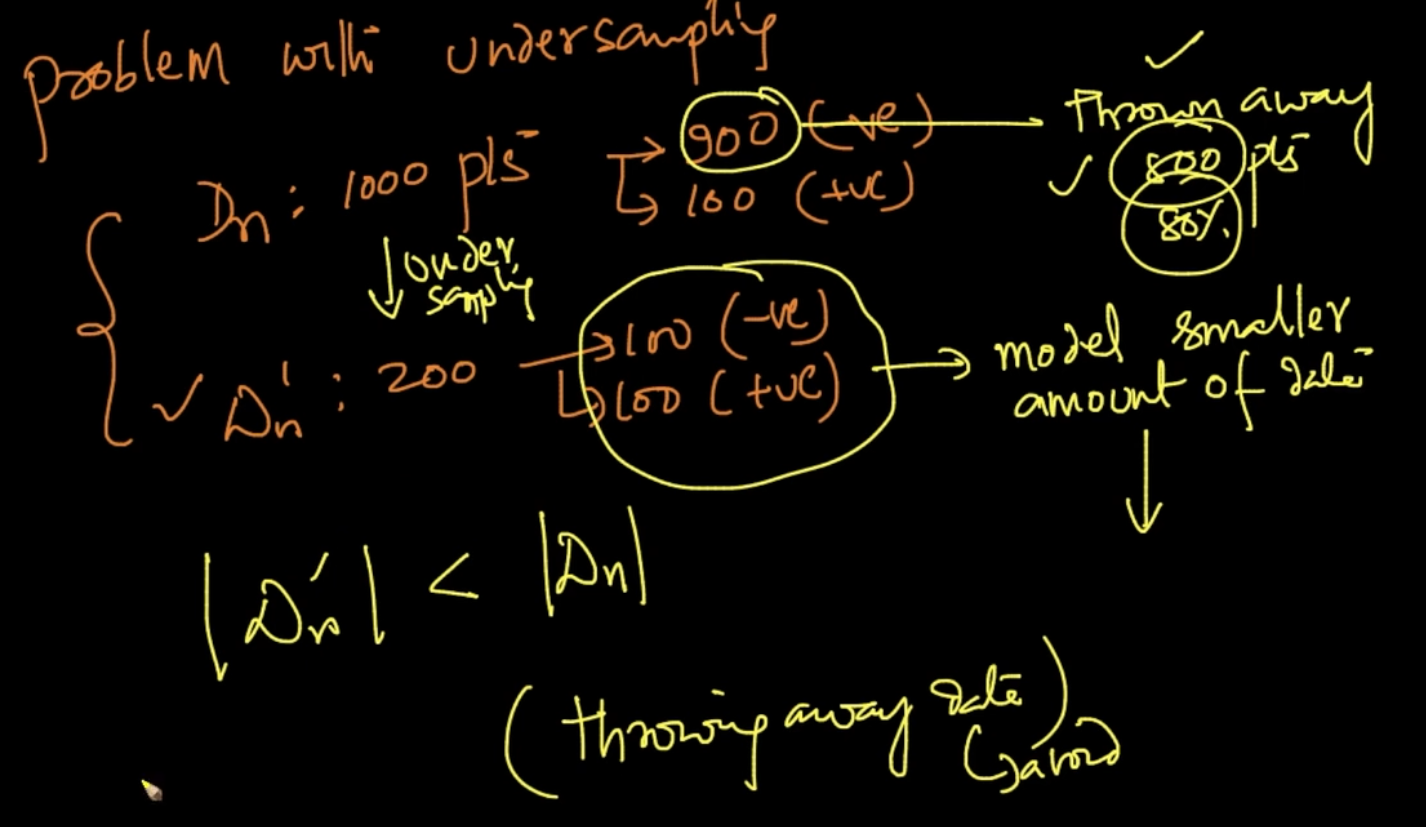 problem with undersampling
Dn : 1000 pts → 900 (-ve) → thrown away
↳ 100 (+ve) ✓ 800 pts
80%.
↓ under
sampling
✓ Dn' : 200 → 100 (-ve) → model smaller
↳ 100 (+ve) amount of data
↓
|Dn'| < |Dn|
(throwing away data)
↳ avoid